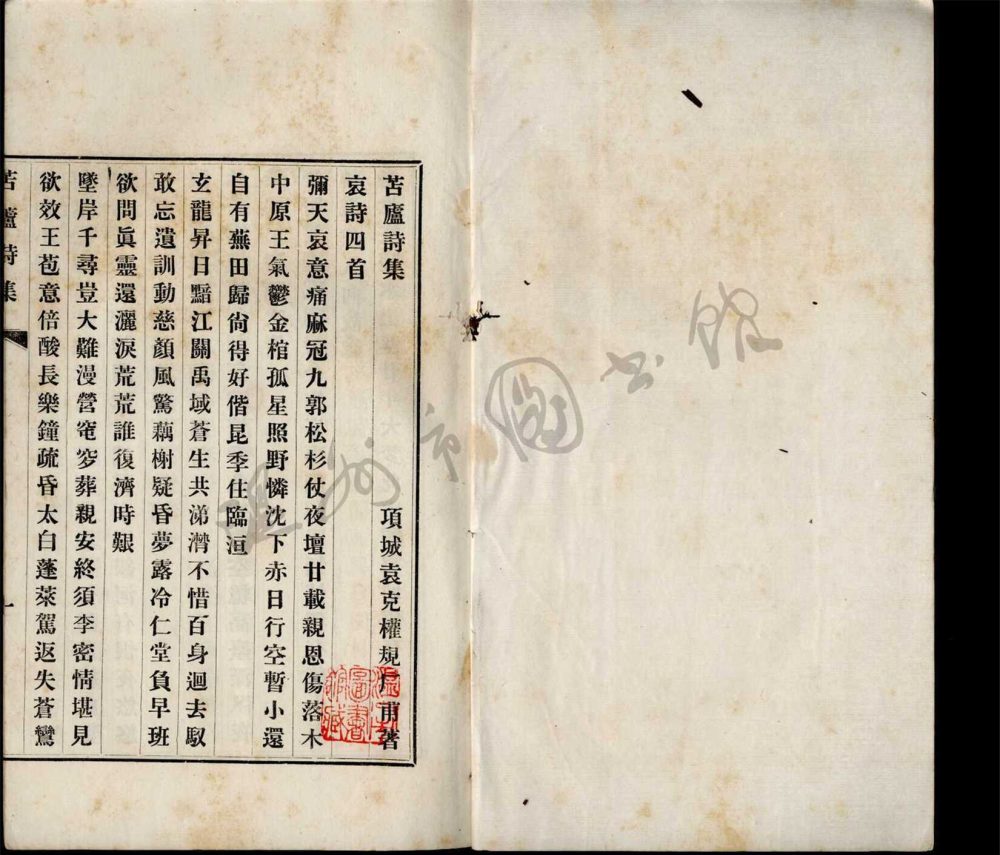 苫廬詩集
項城袁克權規厂甫著
哀詩四首
彌天哀意痛麻冠九郭松杉仗夜壇廿載親恩傷落木
中原王氣鬱金棺孤星照野憐沈下赤日行空暫小還
自有蕪田歸尙得好偕昆季住臨洹
玄龍昇日黯江關禹域蒼生共涕潸不惜百身迴去馭
敢忘遺訓動慈顏風驚藕榭疑昏夢露冷仁堂負早班
欲問眞靈還灑淚荒荒誰復濟時艱
墜岸千尋豈大難漫營窀穸葬親安終須李密情堪見
欲效王苞意倍酸長樂鐘疏昏太白蓬萊駕返失蒼鸞
苫廬詩集
一
溫州市圖書館